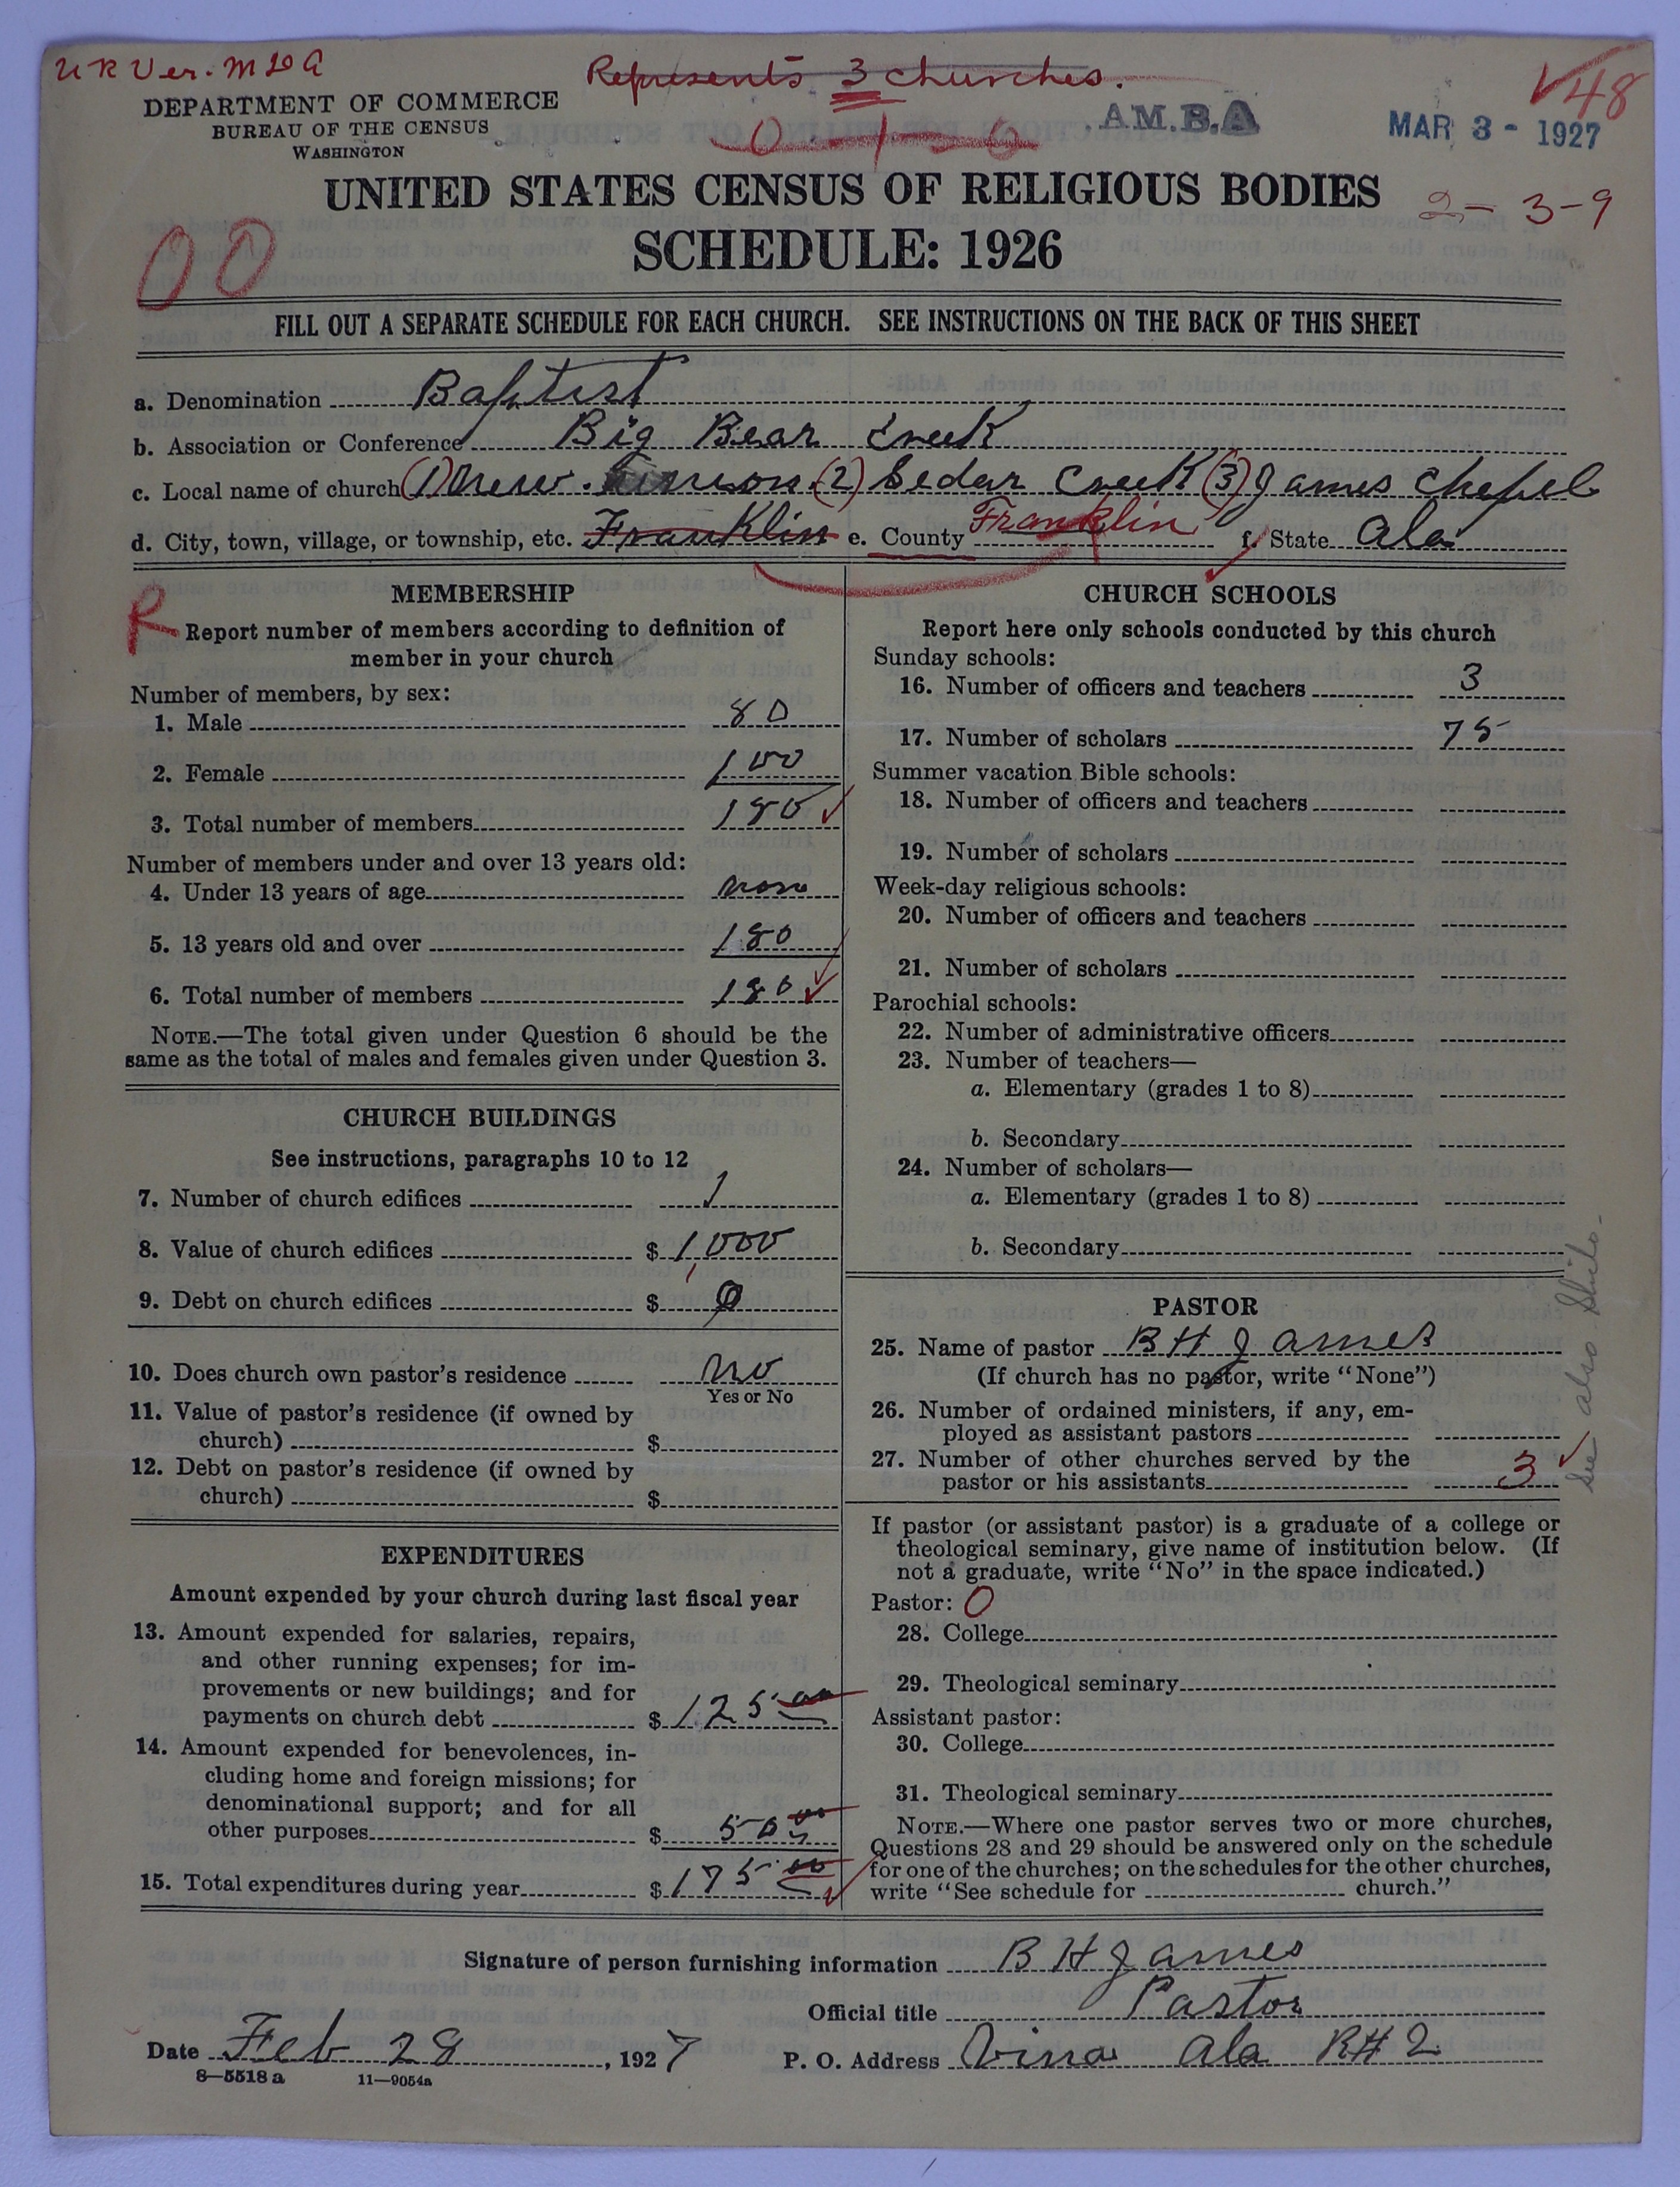 UR Ver. MLA
Represents 3 churches.
48
DEPARTMENT OF COMMERCE
BUREAU OF THE CENSUS
WASHINGTON
0-1-0
A.M.B.A
MAR 3 - 1927
UNITED STATES CENSUS OF RELIGIOUS BODIES
2-3-9
SCHEDULE: 1926
00
FILL OUT A SEPARATE SCHEDULE FOR EACH CHURCH. SEE INSTRUCTIONS ON THE BACK OF THIS SHEET
a. Denomination Baptist
b. Association or Conference Big Bear Creek
c. Local name of church (1) New (2) Sedar Creek (3) James Chepel
d. City, town, village, or township, etc. Franklin e. County Franklin f. State Ala
MEMBERSHIP
R
Report number of members according to definition of
member in your church
Number of members, by sex:
1. Male 80
2. Female 100
3. Total number of members 180
Number of members under and over 13 years old:
4. Under 13 years of age none
5. 13 years old and over 180
6. Total number of members 180
NOTE.—The total given under Question 6 should be the
same as the total of males and females given under Question 3.
CHURCH BUILDINGS
See instructions, paragraphs 10 to 12
7. Number of church edifices 1
8. Value of church edifices $ 1,000
9. Debt on church edifices $ 0
10. Does church own pastor's residence no
Yes or No
11. Value of pastor's residence (if owned by
church) $
12. Debt on pastor's residence (if owned by
church) $
EXPENDITURES
Amount expended by your church during last fiscal year
13. Amount expended for salaries, repairs,
and other running expenses; for im-
provements or new buildings; and for
payments on church debt $ 125 00
14. Amount expended for benevolences, in-
cluding home and foreign missions; for
denominational support; and for all
other purposes $ 50 00
15. Total expenditures during year $ 175 00
CHURCH SCHOOLS
Report here only schools conducted by this church
Sunday schools:
16. Number of officers and teachers 3
17. Number of scholars 75
Summer vacation Bible schools:
18. Number of officers and teachers
19. Number of scholars
Week-day religious schools:
20. Number of officers and teachers
21. Number of scholars
Parochial schools:
22. Number of administrative officers
23. Number of teachers—
a. Elementary (grades 1 to 8)
b. Secondary
24. Number of scholars—
a. Elementary (grades 1 to 8)
b. Secondary
PASTOR
25. Name of pastor B H James
(If church has no pastor, write "None")
26. Number of ordained ministers, if any, em-
ployed as assistant pastors
27. Number of other churches served by the
pastor or his assistants 3
See also Shilo.
If pastor (or assistant pastor) is a graduate of a college or
theological seminary, give name of institution below. (If
not a graduate, write "No" in the space indicated.)
Pastor: 0
28. College
29. Theological seminary
Assistant pastor:
30. College
31. Theological seminary
NOTE.—Where one pastor serves two or more churches,
Questions 28 and 29 should be answered only on the schedule
for one of the churches; on the schedules for the other churches,
write "See schedule for church."
Signature of person furnishing information B H James
Official title Pastor
Date Feb 28, 1927 P. O. Address Vina Ala R#2
8—5518 a 11—9054a